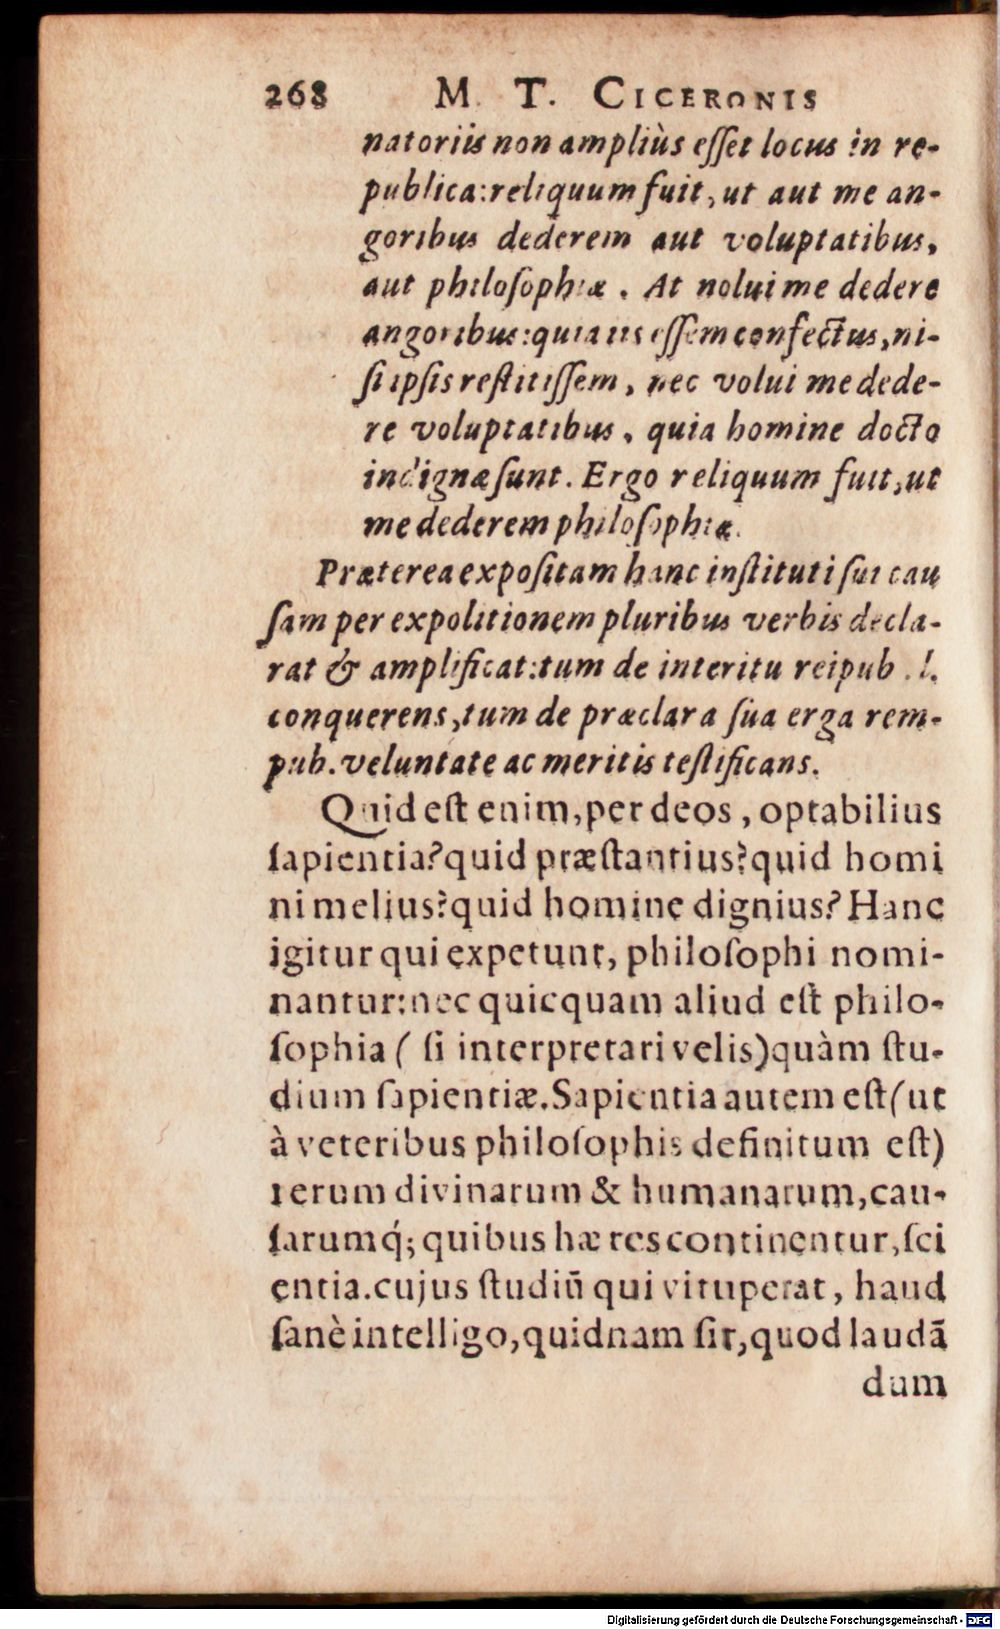 268 M. T. CICERONIS
natoriis non ampliùs eſſet locus in re-
publica: reliquum fuit, ut aut me an-
goribus dederem aut voluptatibus,
aut philoſophiæ. At nolui me dedere
angoribus: quia iis eſſem confectus, ni-
ſi ipſis reſtitiſſem, nec volui me dede-
re voluptatibus, quia homine docto
indignæ ſunt. Ergo reliquum fuit, ut
me dederem philoſophiæ.
Præterea expoſitam hanc inſtituti ſui cau
ſam per expolitionem pluribus verbis decla-
rat & amplificat: tum de interitu reipub. l.
conquerens, tum de præclara ſua erga rem-
pub. veluntate ac meritis teſtificans.
Quid eſt enim, per deos, optabilius
ſapientia? quid præſtantius? quid homi
ni melius? quid homine dignius? Hanc
igitur qui expetunt, philoſophi nomi-
nantur: nec quicquam aliud eſt philo-
ſophia (ſi interpretari velis) quàm ſtu-
dium ſapientiæ. Sapientia autem eſt (ut
à veteribus philoſophis definitum eſt)
rerum divinarum & humanarum, cau-
ſarumq́; quibus hæ res continentur, ſci
entia. cujus ſtudiū qui vituperat, haud
ſanè intelligo, quidnam ſit, quod laudā
dum
Digitalisierung gefördert durch die Deutsche Forschungsgemeinschaft - DFG